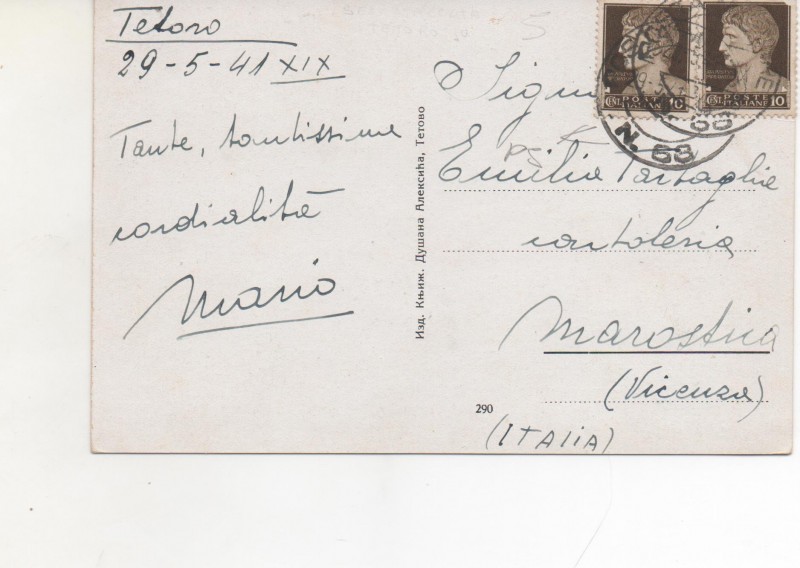 Tetovo
29-5-41 XIX
Tante, tantissime
cordialità
Mario
Изд. Књиж. Душана Алексића, Тетово
290
Emilia
cartoleria
Marostica
(Vicenza)
(ITALIA)
POSTE
ITALIANE
10
POSTE
ITALIANE 10
N. 68
68